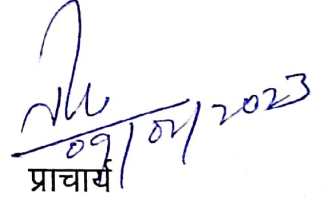 09/02/2023
प्राचार्य